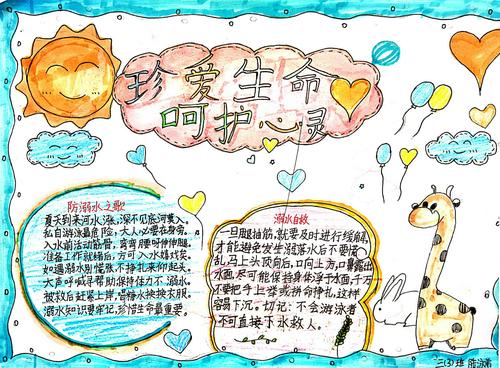 珍爱生命
呵护心灵
防溺水之歌
夏天到来河水涨，深不见底河莫入。
私自游泳最危险，大人必要在身旁。
入水前活动筋骨，弯弯腰呀伸伸腿。
准备工作就绪后，方可入水嬉戏矣。
如遇溺水别慌张，不挣扎来仰起头。
大声呼喊寻帮助保持体力不溺水。
被救后赶紧上岸，喝糖水换换衣服。
溺水知识要牢记，珍惜生命最重要。
溺水自救
一旦腿抽筋，就要及时进行缓解，
才能避免发生溺落水后不要慌
乱，马上头段向后，口向上方，口鼻露出
水面，尽可能保持身体浮于水面，千万
不要把手上举或拼命挣扎，这样
容易下沉。切记：不会游泳者
不可直接下水救人。
三(3)班